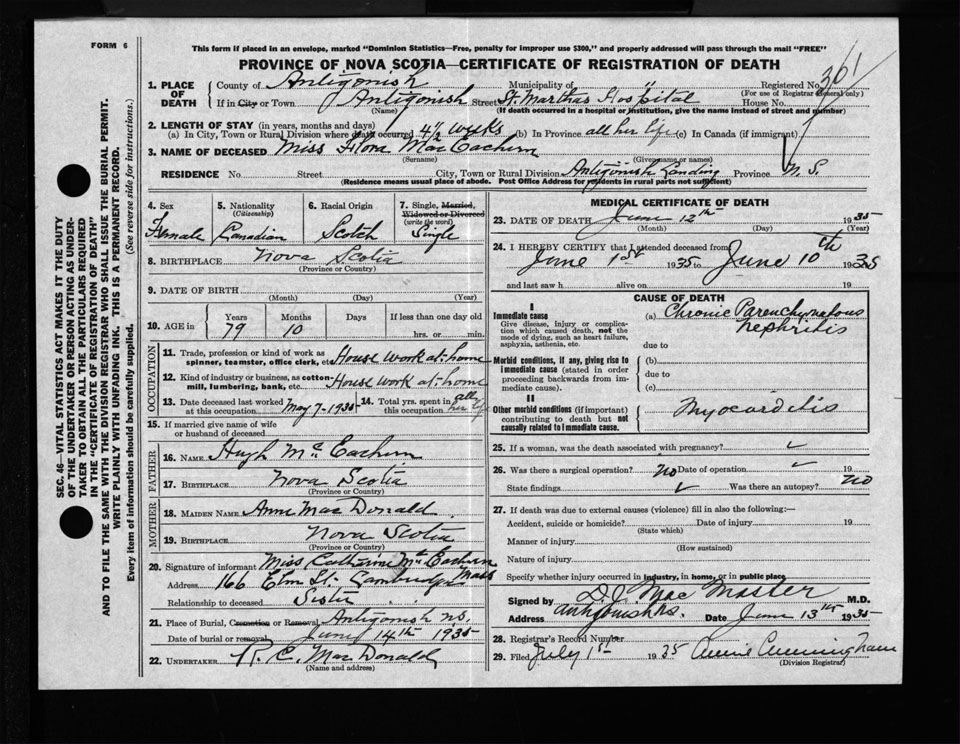 FORM 6
This form if placed in an envelope, marked "Dominion Statistics—Free, penalty for improper use $300," and properly addressed will pass through the mail "FREE"
PROVINCE OF NOVA SCOTIA—CERTIFICATE OF REGISTRATION OF DEATH
1. PLACE OF DEATH County of Antigonish Municipality of " Registered No. 361
(For use of Registrar General only)
If in City or Town Antigonish Street St. Marthas Hospital House No.
(Name) (If death occurred in a hospital or institution, give the name instead of street and number)
2. LENGTH OF STAY (in years, months and days)
(a) In City, Town or Rural Division where death occurred 4½ weeks (b) In Province all her life (c) In Canada (if immigrant)
3. NAME OF DECEASED Miss Flora MacEachern
(Surname) (Given name or names)
RESIDENCE No. Street City, Town or Rural Division Antigonish Landing Province N.S.
(Residence means usual place of abode. Post Office Address for residents in rural parts not sufficient)
4. Sex Female
5. Nationality (Citizenship) Canadian
6. Racial Origin Scotch
7. Single, Married, Widowed or Divorced (write the word) Single
8. BIRTHPLACE Nova Scotia
(Province or Country)
9. DATE OF BIRTH
(Month) (Day) (Year)
10. AGE in Years Months Days If less than one day old
79 10 hrs. or min.
OCCUPATION
11. Trade, profession or kind of work as spinner, teamster, office clerk, etc. House work at home
12. Kind of industry or business, as cotton-mill, lumbering, bank, etc. House work at home
13. Date deceased last worked at this occupation May 7-1935
14. Total yrs. spent in this occupation all her life
15. If married give name of wife or husband of deceased
FATHER
16. NAME Hugh McEachern
17. BIRTHPLACE Nova Scotia
(Province or Country)
MOTHER
18. MAIDEN NAME Anne MacDonald
19. BIRTHPLACE Nova Scotia
(Province or Country)
20. Signature of informant Miss Catherine McEachern
Address 166 Elm St. Cambridge Mass
Relationship to deceased Sister
21. Place of Burial, Cremation or Removal Antigonish N.S.
Date of burial or removal June 14th 1935
22. UNDERTAKER R. C. MacDonald
(Name and address)
MEDICAL CERTIFICATE OF DEATH
23. DATE OF DEATH June 12th 1935
(Month) (Day) (Year)
24. I HEREBY CERTIFY that I attended deceased from
June 1st 1935 to June 10th 1935
and last saw h alive on 19
CAUSE OF DEATH
I
Immediate cause
Give disease, injury or complication which caused death, not the mode of dying, such as heart failure, asphyxia, asthenia, etc.
(a) Chronic Parenchymatous nephritis
due to
Morbid conditions, if any, giving rise to immediate cause (stated in order proceeding backwards from immediate cause).
(b)
due to
(c)
II
Other morbid conditions (if important) contributing to death but not causally related to immediate cause.
Myocarditis
25. If a woman, was the death associated with pregnancy? ✓
26. Was there a surgical operation? No Date of operation ✓ 19
State findings ✓ Was there an autopsy? No
27. If death was due to external causes (violence) fill in also the following:—
Accident, suicide or homicide? Date of injury 19
(State which)
Manner of injury
(How sustained)
Nature of injury
Specify whether injury occurred in industry, in home, or in public place
Signed by D.J. MacMaster M.D.
Address Antigonish N.S. Date June 13th 1935
28. Registrar's Record Number
29. Filed July 1st 1935 Annie Cunningham
(Division Registrar)
SEC. 46—VITAL STATISTICS ACT MAKES IT THE DUTY
OF THE UNDERTAKER OR PERSON ACTING AS UNDER-
TAKER TO OBTAIN ALL THE PARTICULARS REQUIRED
IN THE "CERTIFICATE OF REGISTRATION OF DEATH"
AND TO FILE THE SAME WITH THE DIVISION REGISTRAR WHO SHALL ISSUE THE BURIAL PERMIT.
WRITE PLAINLY WITH UNFADING INK. THIS IS A PERMANENT RECORD.
Every item of information should be carefully supplied. (See reverse side for instructions.)